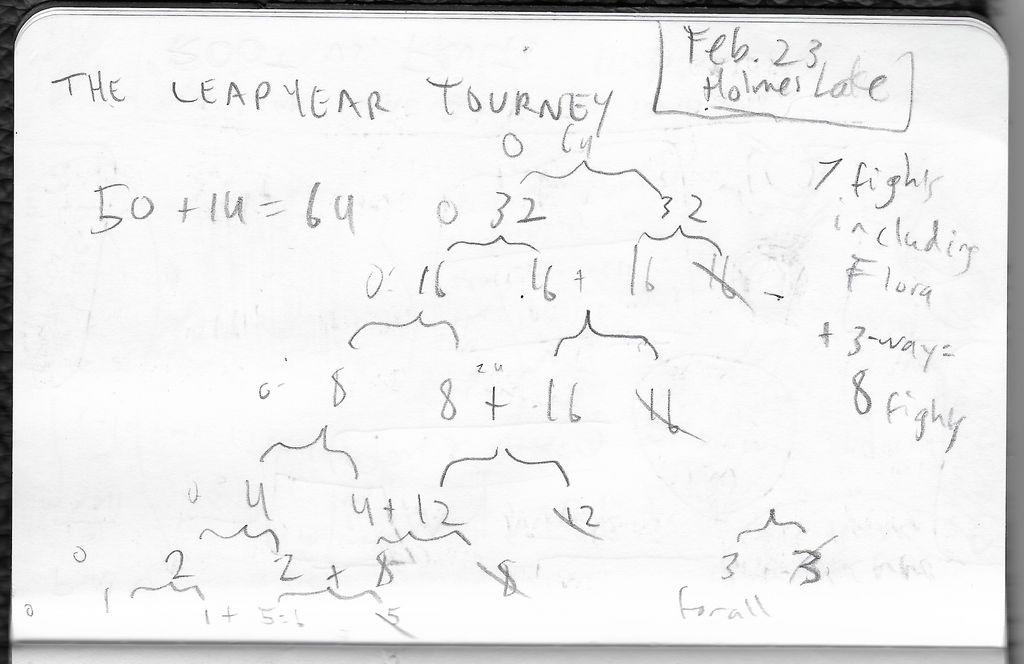 Feb. 23
Holmes Lake
THE LEAPYEAR TOURNEY
0 64
50 + 14 = 64 0 32 32
0: 16 16 + 16 16 -
7 fights
including
Flora
+ 3-way =
8 fights
0- 8 8 + 16 16
24
0 4 4 + 12 12
0 2 2 + 8 8 3 3
for all
0 1 1 + 5 = 6 5